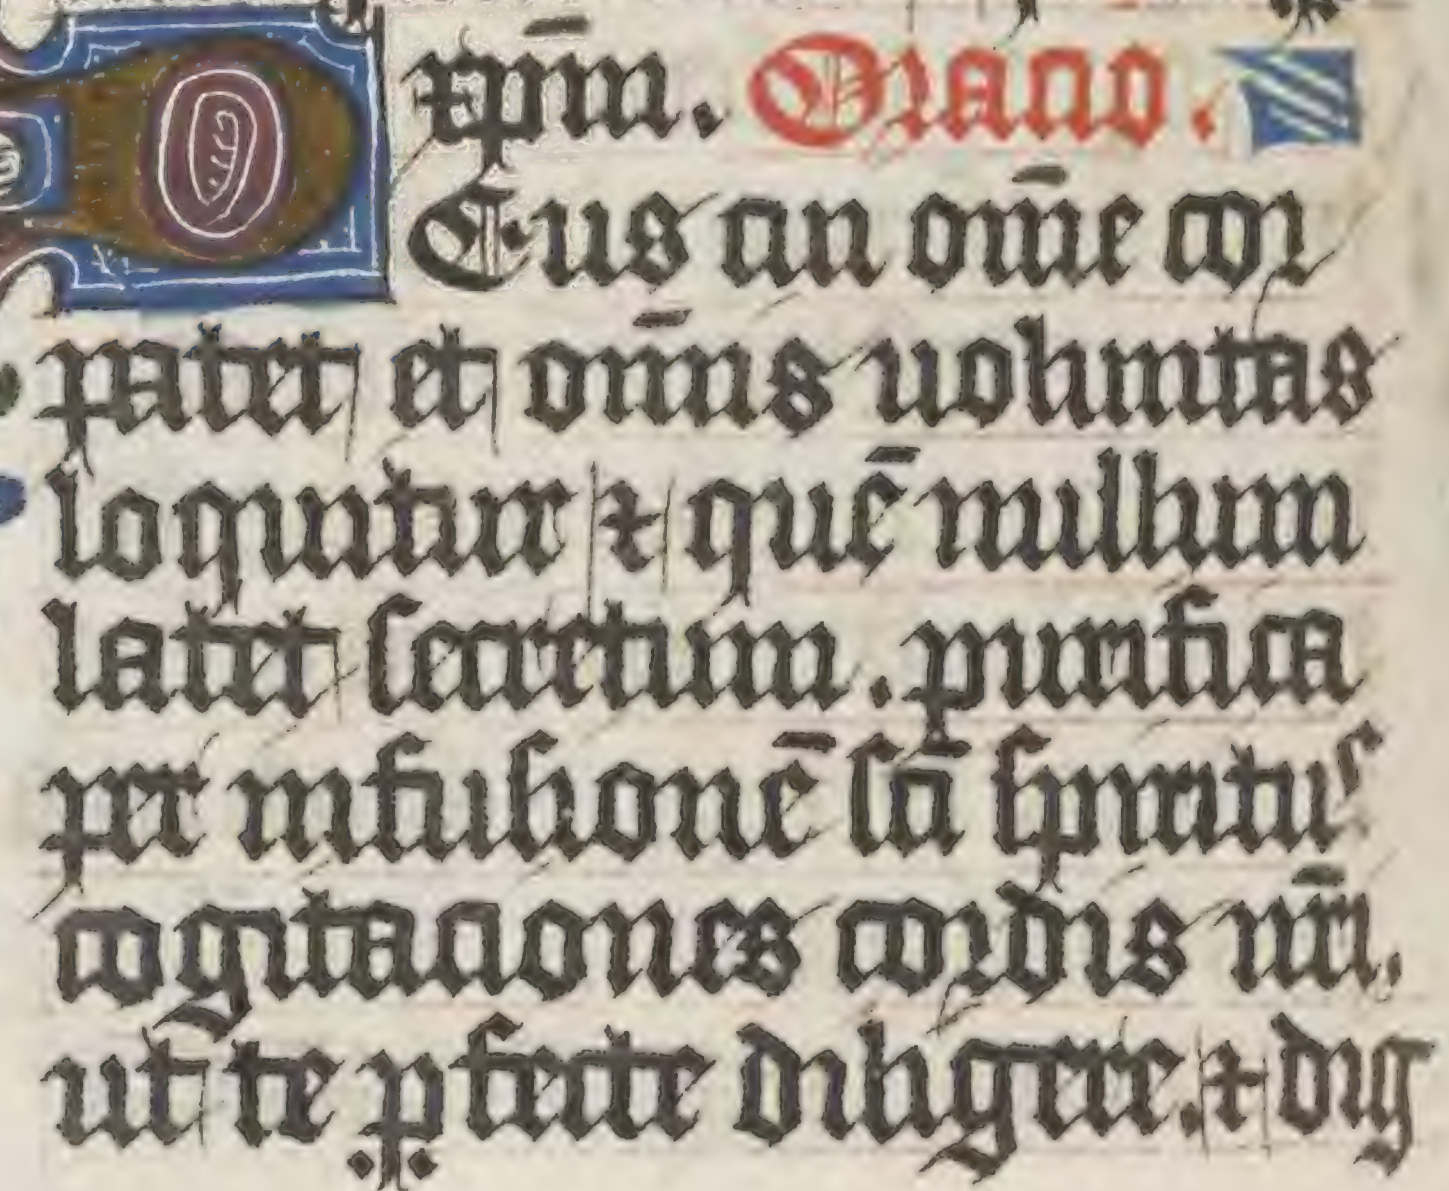 xp̄m. Oracio.
DEus cui om̄e cor
patet et om̄is uoluntas
loquitur ⁊ quē nullum
latet secretum. purifica
per infusionē sc̄i spiritus
cogitaciones cordis nr̄i.
ut te ꝑfecte diligere. ⁊ dig